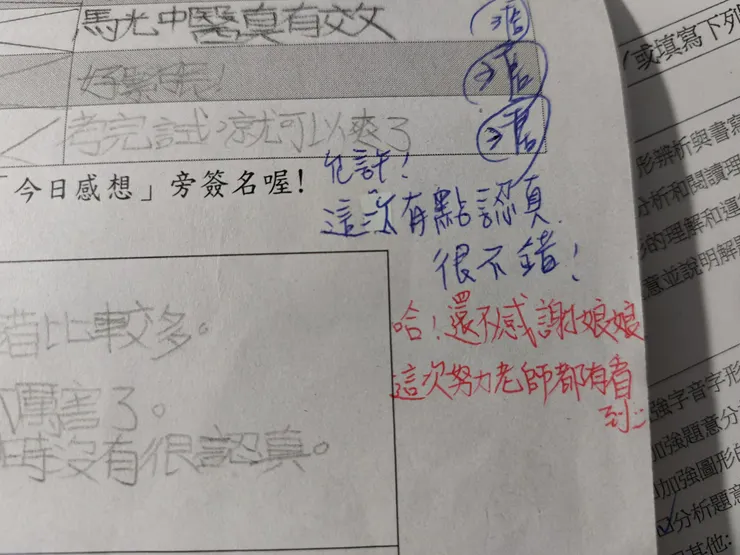 馬光中醫真有效
好緊張!
考完試,就可以爽了
「今日感想」旁簽名喔!
允許!
這次有點認真
很不錯!
比較多。
厲害了。
時沒有很認真。
哈!還不感謝娘娘
這次努力老師都有看
到
/或填寫下列
形辨析與書寫
分析和閱讀理
的理解和運
意並說明解
強字音字形
加強題意分
加強圖形的
分析題意
其他: